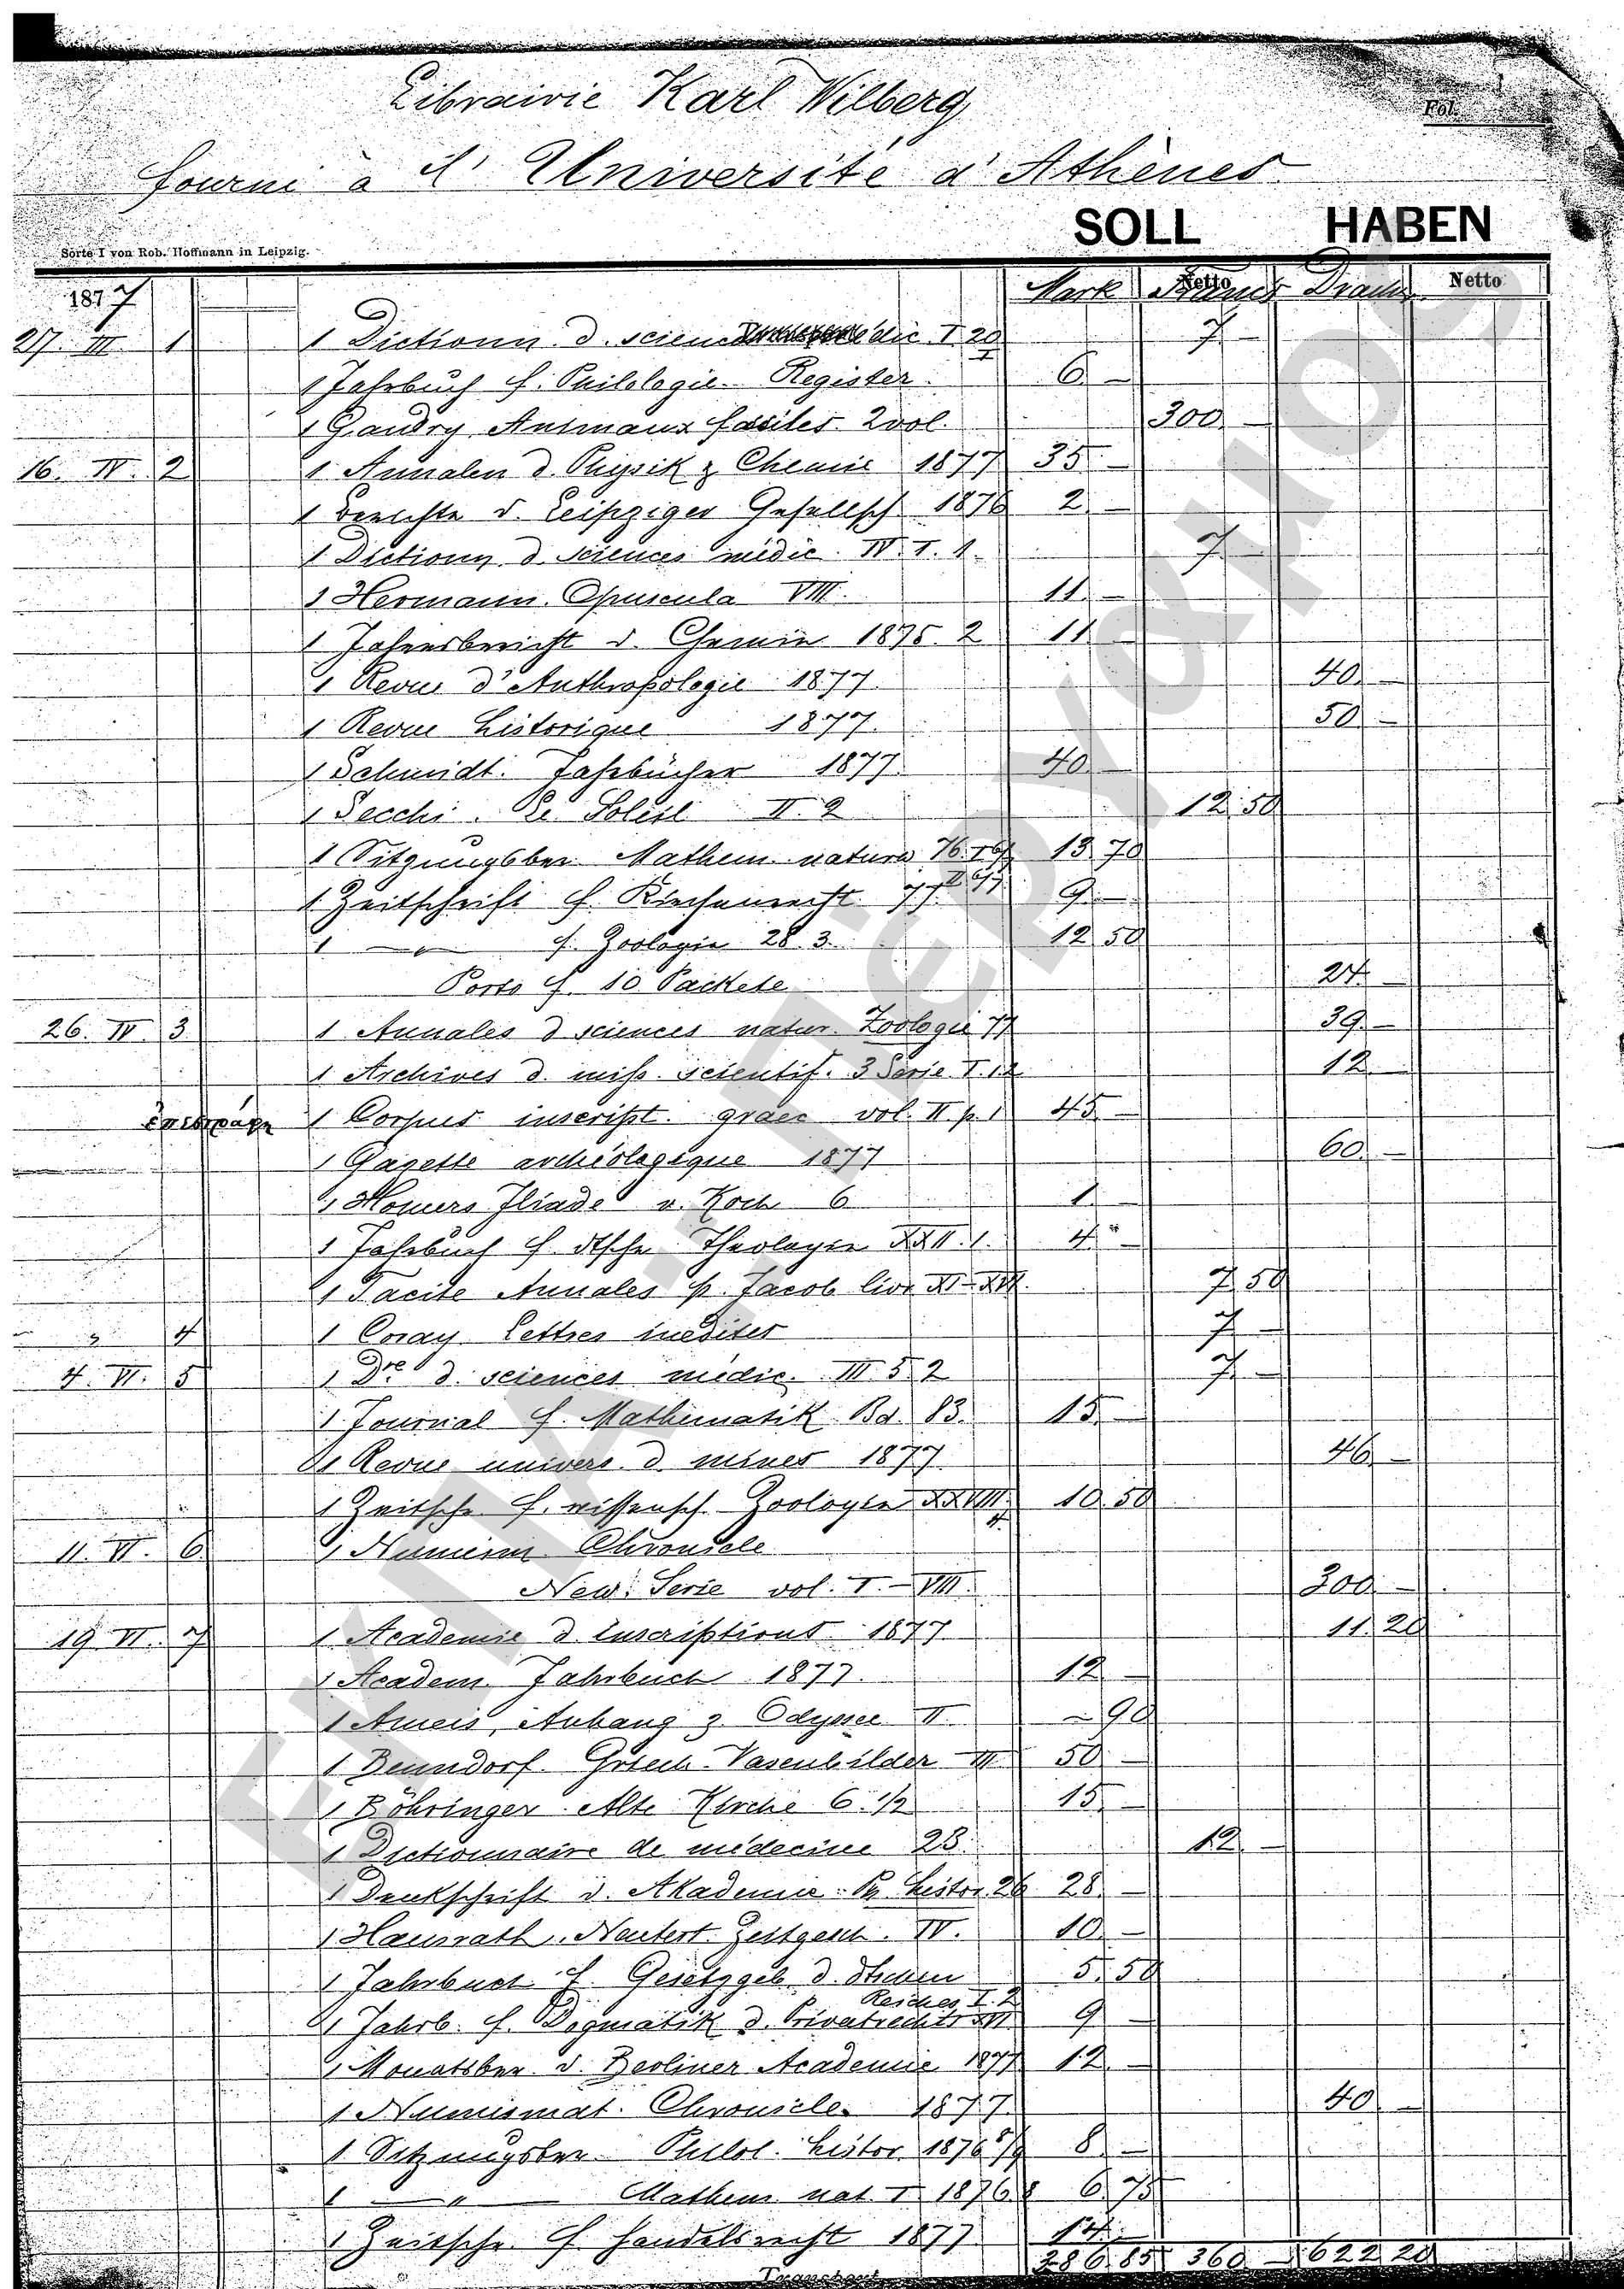 Librairie Karl Wilberg
Fol.
fourni à l'Université d'Athènes
SOLL HABEN
Sorte I von Rob. Hoffmann in Leipzig.
1877 Mark Francs Drachm Netto
27. III 1 1 Dictionn. d. scienc dic I 20 7 —
1 Jahrbuch f. Philologie. Register. 6 —
1 Gaudry Animaux fossiles 2 vol. 300 —
16. IV. 2 1 Annalen d. Physik & Chemie 1877 35 —
1 Berichte d. Leipziger Gesellsch 1876 2 —
1 Dictionn d. sciences médic. IV. I. 1. 7 —
1 Hermann. Opuscula VIII. 11 —
1 Jahresbericht d. Chemie 1875. 2 11
1 Revue d'Anthropologie 1877. 40 —
1 Revue historique 1877. 50 —
1 Schmidt. Jahrbücher 1877. 40 —
1 Secchi. Le Soleil II. 2 12 50
1 Sitzungsber. Mathem. naturw 76 13 70
1 Zeitschrift f. Kirchenrecht. 9 —
1 — " — f. Zoologie 28. 3. 12 50
Porto f. 10 Packete 24
26. IV. 3 1 Annales d sciences natur. Zoologie 77 39 —
1 Archives d. miss. scientif. 3 Serie T. 12 —
1 Corpus inscript. graec vol. II p. 1 45 —
1 Gazette archéologique 1877 60 —
1 Homers Iliade v. Koch 6 1 —
1 Jahrbuch f. dtsche Theologie XXII. 1. 4 —
1 Tacite Annales p. Jacob livr XI-XVI. 7 50
— " 4 1 Coray Lettres inédites 7 —
4. VI. 5 1 Dre d. sciences médic. III 5 2 7 —
1 Journal f. Mathematik Bd. 83. 15 —
1 Revue univers. d. mines 1877 46 —
1 Zeitschr. f. wissensch. Zoologie XXVIII. 4. 10 50
11. VI. 6 1 Numism Chronicle
New. Serie vol. I. - VIII. 300 —
19. VI. 7 1 Academie d. inscriptions 1877 11 20
1 Academ. Jahrbuch 1877. 12 —
1 Ameis, Anhang z. Odyssee II. — 90
1 Benndorf. Griech. Vasenbilder III 50 —
1 Böhringer. Alte Kirche 6. 1/2 15 —
1 Dictionnaire de médecine 23. 12 —
1 Denkschrift d. Akademie. Ph. histor 26 28 —
1 Hausrath. Neutest. Zeitgesch. IV. 10 —
1 Jahrbuch f. Gesetzgeb. d. dtschen 5 50
Reiches I. 2
1 Jahrb. f. Dogmatik d. Privatrechts XVI 9 —
1 Monatsber. d. Berliner Academie 1877 12 —
1 Numismat. Chronicle 1877. 40 —
1 Sitzungsber. Philol. histor. 1876 8/9 8 —
1 — " — Mathem. nat. I 1876.8 6 75
1 Zeitschr. f. Handelsrecht 1877. 14 —
386 85 360 — 622 20
Transport